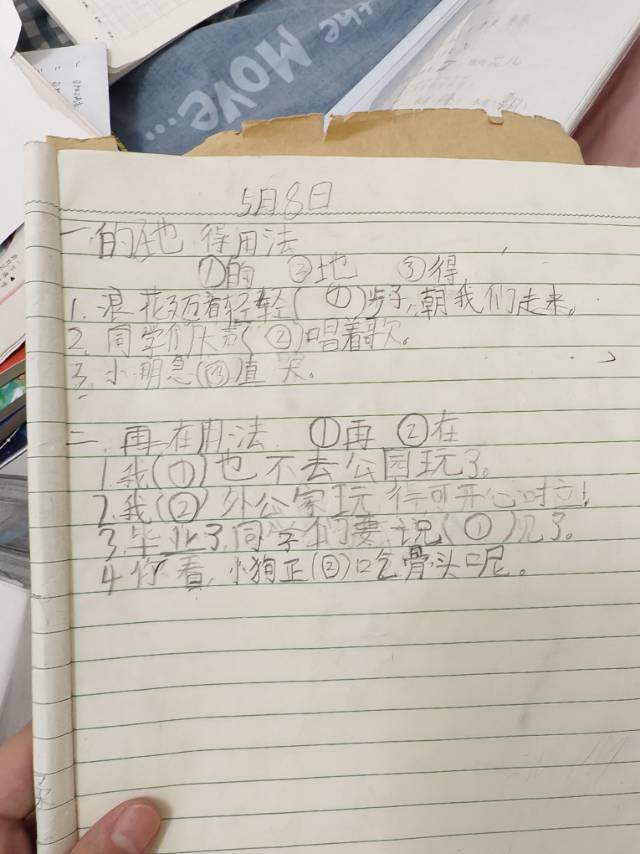 the MOVE...
5月8日
一的地 得用法
①的 ②地 ③得
1. 浪花迈着轻轻(①)步子,朝我们走来。
2. 同学们大声(②)唱着歌。
3. 小明急(③)直哭。
二.再在用法 ①再 ②在
1.我(①)也不去公园玩了。
2.我(②)外公家玩 得可开心啦!
3.毕业了,同学们要说(①)见了。
4.你看,小狗正(②)吃骨头呢。